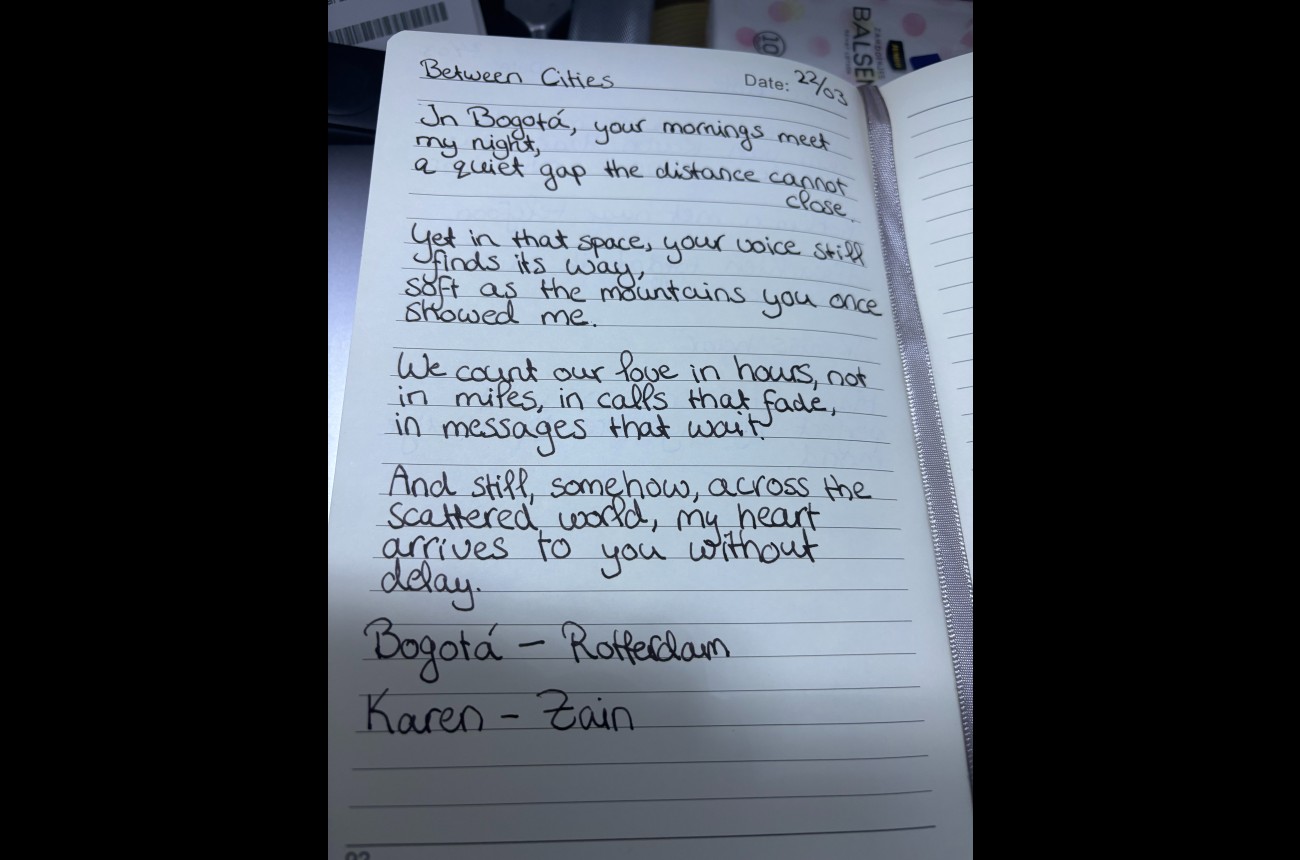 Between Cities
Date: 22/03
In Bogotá, your mornings meet
my night,
a quiet gap the distance cannot
close.
Yet in that space, your voice still
finds its way,
soft as the mountains you once
showed me.
We count our love in hours, not
in miles, in calls that fade,
in messages that wait.
And still, somehow, across the
scattered world, my heart
arrives to you without
delay.
Bogotá – Rotterdam
Karen – Zain
BALSEM
10